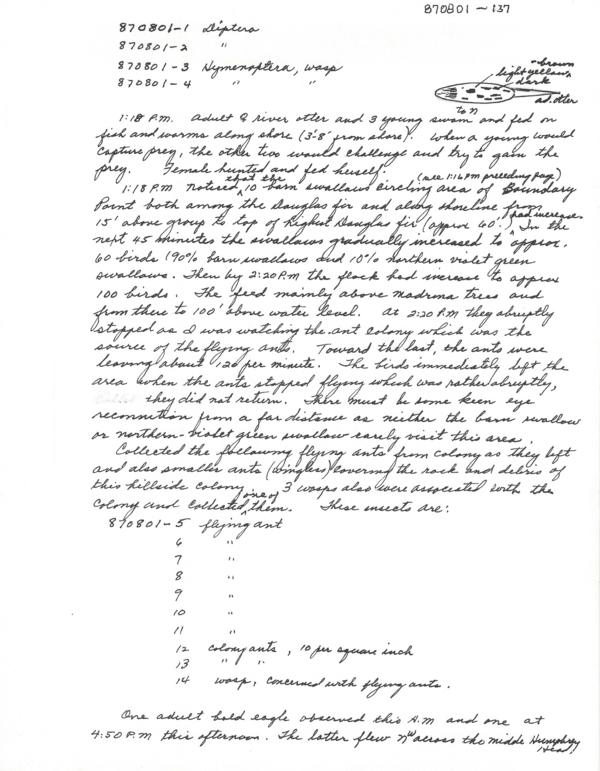 870801-137
870801-1 Diptera
870801-2 "
870801-3 Hymenoptera, wasp
870801-4 " "
brown
light yellow
dark
ad. otter
to N
1:18 P.M. Adult ♀ river otter and 3 young swam and fed on
fish and worms along shore (3'-8' from shore). When a young would
capture prey, the other two would challenge and try to gain the
prey. Female hunted and fed herself.
(see 1:16 PM preceeding page)
1:18 P.M noticed that the 10 barn swallows circling area of Boundary
Point both among the Douglas fir and along shoreline from
15' above group to top of highest Douglas fir (approx 60'. had increase. In the
next 45 minutes the swallows gradually increased to approx.
60 birds (90% barn swallows and 10% northern violet green
swallows. Then by 2:20 P.M the flock had increase to approx
100 birds. The feed mainly above madrona trees and
from there to 100' above water level. At 2:20 P.M they abruptly
stopped as I was watching the ant colony which was the
source of the flying ants. Toward the last, the ants were
leaving about 120 per minute. The birds immediately left the
area when the ants stopped flying which was rather abruptly,
they did not return. There must be some keen eye
reconnition from a far distance as niether the barn swallow
or northern-violet green swallow rarely visit this area.
Collected the following flying ants from colony as they left
and also smaller ants (wingless) covering the rock and debris of
this hillside colony. 3 wasps also were associated with the
colony and collected one of them. These insects are:
870801-5 flying ant
6 "
7 "
8 "
9 "
10 "
11 "
12 colony ants, 10 per square inch
13 " "
14 wasp, concerned with flying ants.
One adult bald eagle observed this A.M and one at
4:50 P.M this afternoon. The latter flew NW across the middle Humphrey
Head!